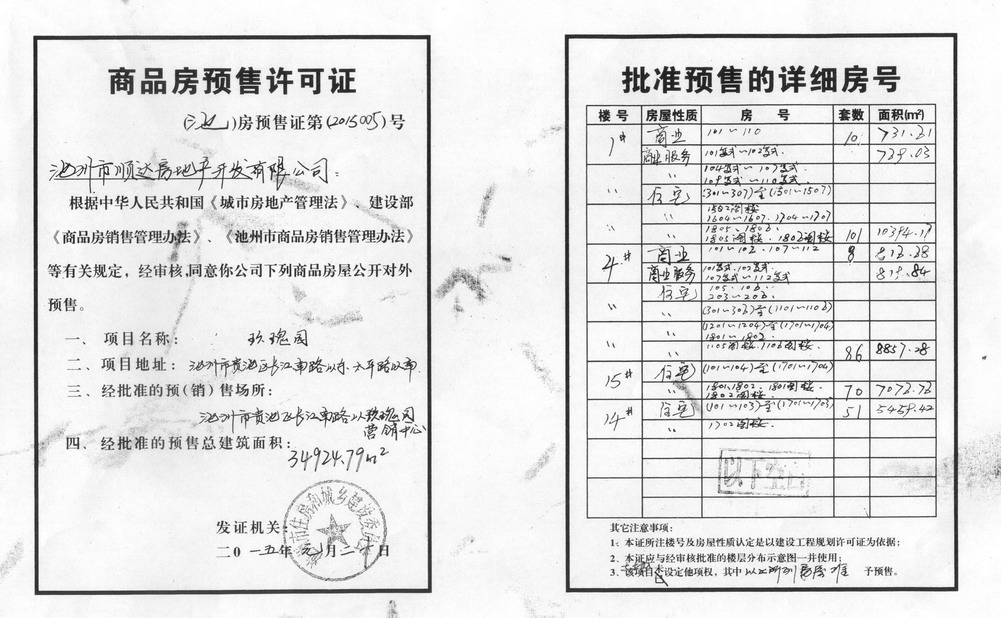 商品房预售许可证
(池)房预售证第(2015005)号
池州市顺达房地产开发有限公司:
根据中华人民共和国《城市房地产管理法》、建设部
《商品房销售管理办法》、《池州市商品房销售管理办法》
等有关规定,经审核,同意你公司下列商品房屋公开对外
预售。
一、项目名称: 玫瑰园
二、项目地址: 池州市贵池区长江南路以东、太平路以南
三、经批准的预(销)售场所:
池州市贵池区长江南路以玫瑰园
营销中心
四、经批准的预售总建筑面积:
34924.79m²
发证机关:
二0一五年元月二十日
批准预售的详细房号
楼号 房屋性质 房号 套数 面积(㎡)
1# 商业 101~110 10 731.21
商业服务 739.03
住宅 (301~307)至(1501~1507)
〃 1502阁楼
1604~1607、1704~1707
1805阁楼、1802阁楼 101 10394.19
商业 8
商业服务 819.84
住宅 105、106、
203~206、
〃 (301~306)至(1101~1106)
〃 (1201~1204)至(1701~1704)
1801~1802、
1105阁楼、1106阁楼 86 8857.28
15# 住宅 (101~104)至(1701~1704)
〃 1801、1802、1801阁楼
1802阁楼、 70 7073.73
14# 住宅 (101~103)至(1701~1703) 51 5459.42
〃 1702阁楼、
以下空白
其它注意事项:
1、本证所注楼号及房屋性质认定是以建设工程规划许可证为依据;
2、本证应与经审核批准的楼层分布示意图一并使用;
3、该项目已设定他项权,其中以上所列房屋准予预售。